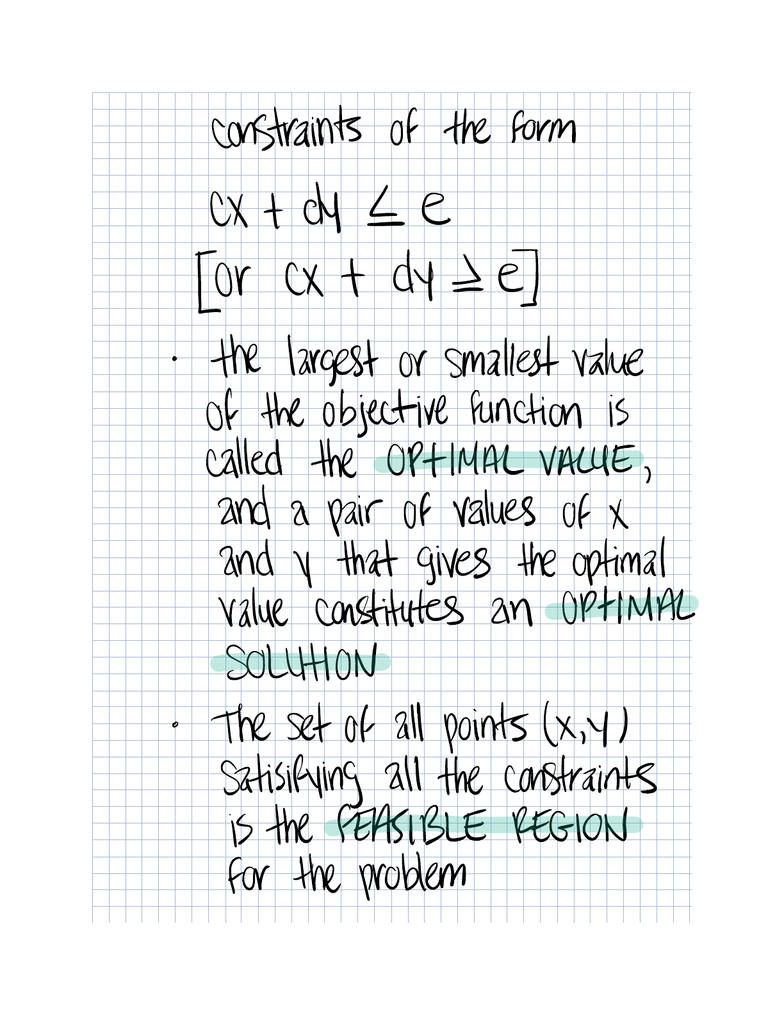 constraints of the form
cx + dy ≤ e
[or cx + dy ≥ e]
· the largest or smallest value
of the objective function is
called the OPTIMAL VALUE,
and a pair of values of x
and y that gives the optimal
value constitutes an OPTIMAL
SOLUTION
· The set of all points (x,y)
satisifying all the constraints
is the FEASIBLE REGION
for the problem